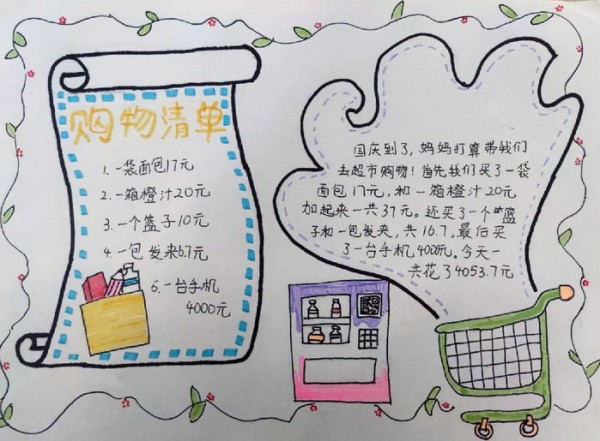 购物清单
1. 一袋面包17元
2. 一箱橙汁20元
3. 一个篮子10元
4. 一包发来6.7元
6. 一台手机
4000元
国庆到了，妈妈打算带我们
去超市购物！首先我们买了一袋
面包17元，和一箱橙汁20元
加起来一共37元。还买了一个篮
子和一包发夹，共16.7，最后买
了一台手机4000元。今天一
共花了4053.7元